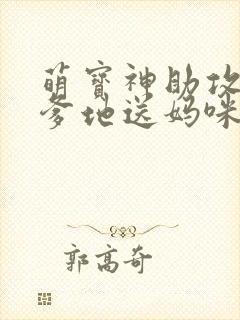 萌宝神助攻
爹地送妈咪
郭高奇